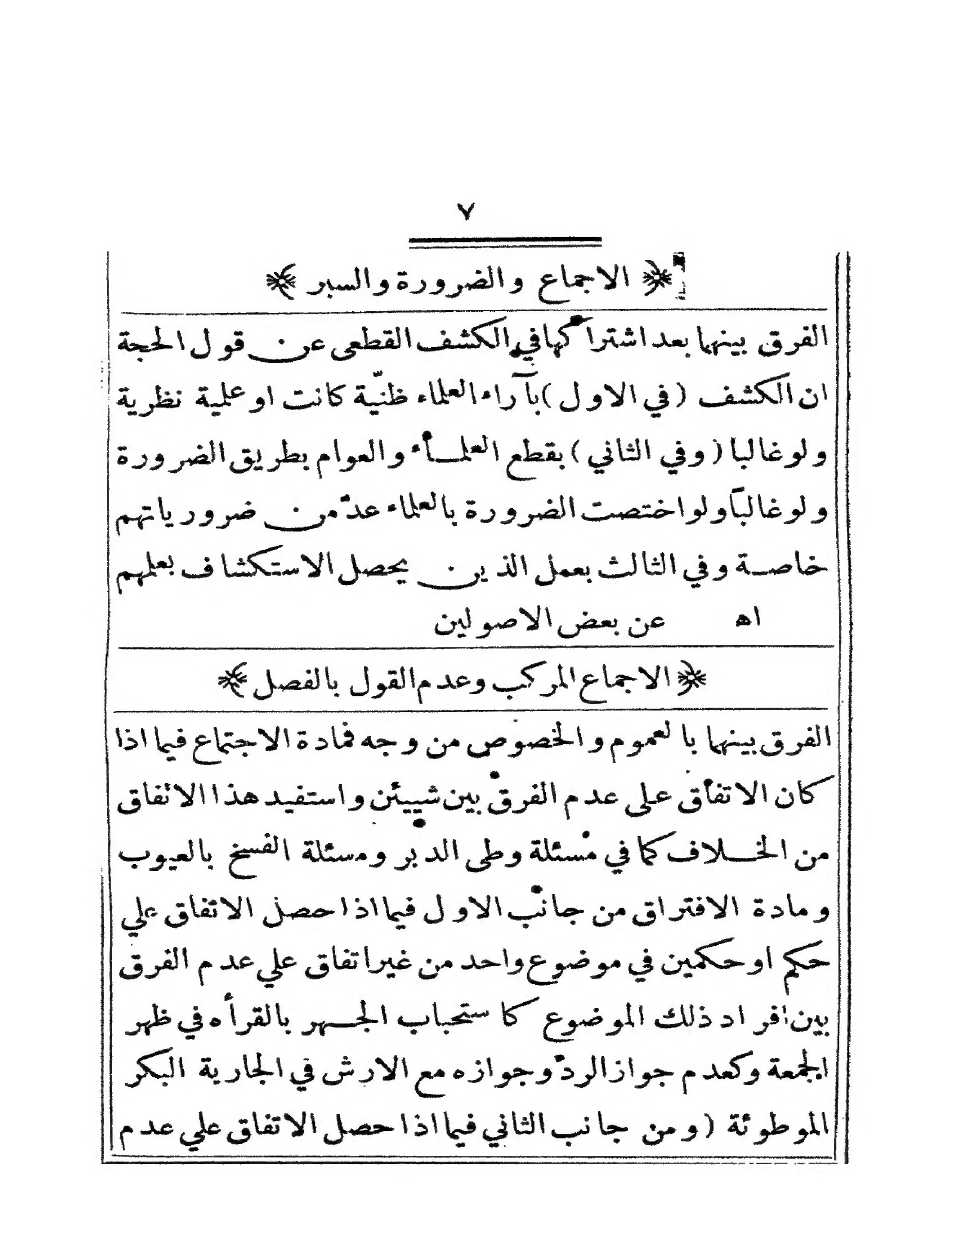 ٧
الاجماع والضرورة والسبر
الفرق بينهما بعد اشتراكهما في الكشف القطعى عن قول الحجة
ان الكشف (في الاول) بآراء العلماء ظنّية كانت او علمية نظرية
ولو غالبا (وفي الثاني) بقطع العلمــاء والعوام بطريق الضرورة
ولو غالباً ولو اختصت الضرورة بالعلماء عدّ من ضرورياتهم
خاصــة وفي الثالث بعمل الذين يحصل الاستكشاف بعلمهم
اه عن بعض الاصولين
الاجماع المركب وعدم القول بالفصل
الفرق بينهما بالعموم والخصوص من وجه فمادة الاجتماع فيما اذا
كان الاتفاق على عدم الفرق بين شييئن واستفيد هذا الاتفاق
من الخــلاف كما في مسئلة وطى الدبر ومسئلة الفسخ بالعيوب
ومادة الافتراق من جانب الاول فيما اذا حصل الاتفاق علي
حكم او حكمين في موضوع واحد من غير اتفاق علي عدم الفرق
بين افراد ذلك الموضوع كاستحباب الجــهر بالقرأه في ظهر
الجمعة وكعدم جواز الردّ وجوازه مع الارش في الجارية البكر
الموطوئة (ومن جانب الثاني فيما اذا حصل الاتفاق علي عدم